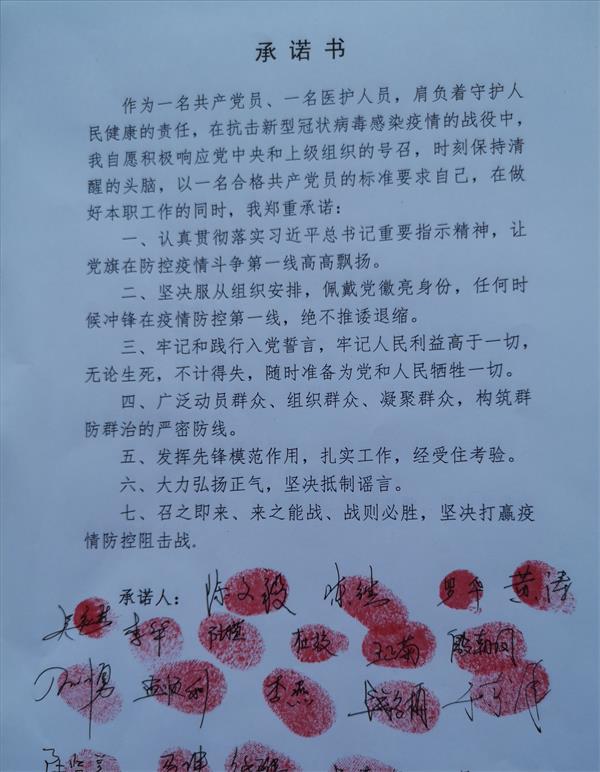 承诺书
作为一名共产党员、一名医护人员，肩负着守护人
民健康的责任，在抗击新型冠状病毒感染疫情的战役中，
我自愿积极响应党中央和上级组织的号召，时刻保持清
醒的头脑，以一名合格共产党员的标准要求自己，在做
好本职工作的同时，我郑重承诺：
一、认真贯彻落实习近平总书记重要指示精神，让
党旗在防控疫情斗争第一线高高飘扬。
二、坚决服从组织安排，佩戴党徽亮身份，任何时
候冲锋在疫情防控第一线，绝不推诿退缩。
三、牢记和践行入党誓言，牢记人民利益高于一切，
无论生死，不计得失，随时准备为党和人民牺牲一切。
四、广泛动员群众、组织群众、凝聚群众，构筑群
防群治的严密防线。
五、发挥先锋模范作用，扎实工作，经受住考验。
六、大力弘扬正气，坚决抵制谣言。
七、召之即来、来之能战、战则必胜，坚决打赢疫
情防控阻击战.
承诺人： 罗华 黄涛
李华
李杰